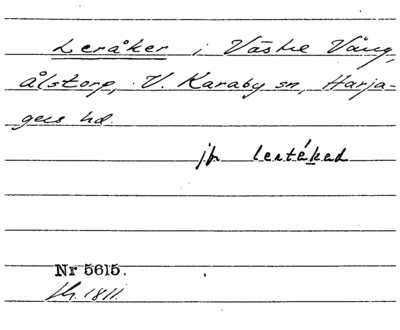 Leråker i Västra Vång,
Ålstorp, V. Karaby sn, Harja-
gers hd.
jfr lertákad
Nr 5615.
1811.